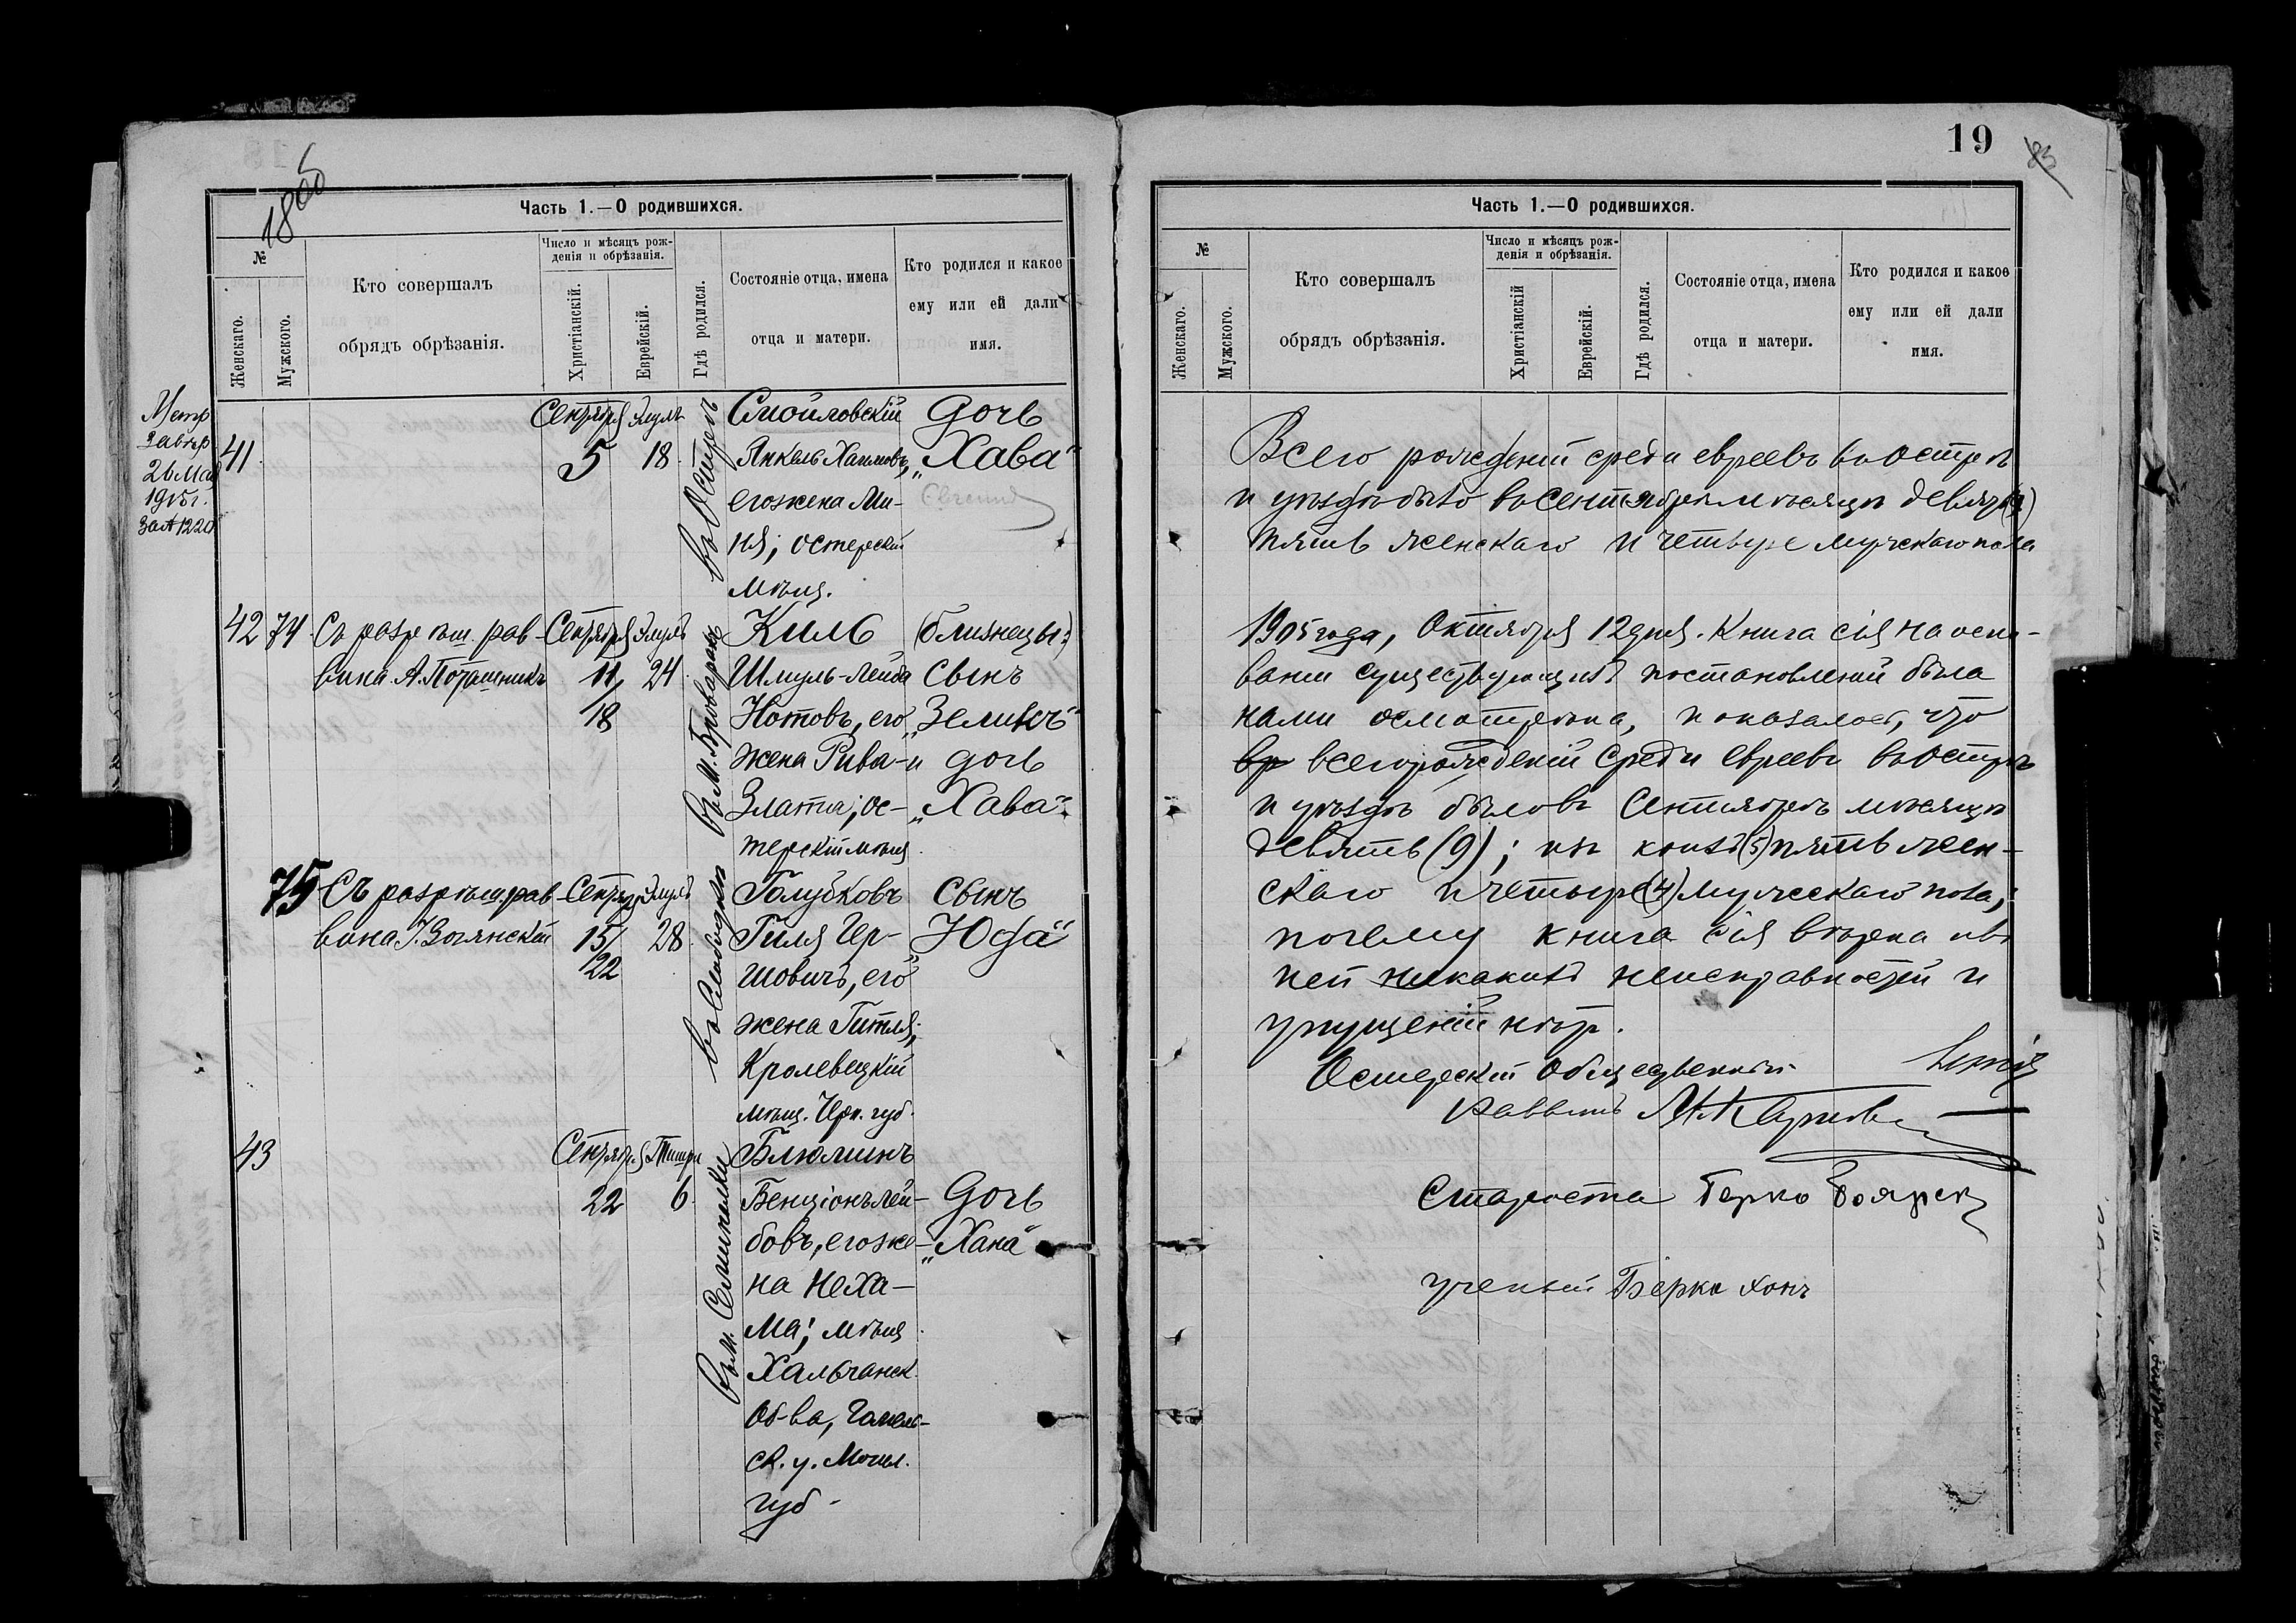 18об
Часть 1.—О родившихся.
№
Женскаго.
Мужского.
Кто совершалъ
обрядъ обрѣзанія.
Число и мѣсяцъ рож-
денія и обрѣзанія.
Христіанскій.
Еврейскій.
Гдѣ родился.
Состояніе отца, имена
отца и матери.
Кто родился и какое
ему или ей дали
имя.
Метр
Завѣр
26 Мая
1915 г.
за № 1220
41
Сентября Элулъ
5 18
въ Острѣ
Смойловскій
Янкель Хаимовъ,
его жена Ми-
ня; остерскій
мѣщ.
Дочь
„Хава“
42 74
Съ разрѣш. рав-
вина А. Поташникъ
Сентября Элулъ
11/18 24
въ М. Броварахъ
Киль
Шмуль-Лейба
Нотовъ, его
жена Рива-
Злата; ос-
терскій мѣщ.
(близнецы:)
Сынъ
„Зеликъ“
и дочь
„Хава“
75
Съ разрѣш. рав-
вина
Сентября Элулъ
15/22 28
въ Слободкѣ
Голубковъ
Гиля Гер-
шовичъ, его
жена Гитля;
Кролевецкій
мѣщ. Черн. губ.
Сынъ
„Юда“
43
Сентября Тишри
22 6
въ м. Семиполки
Блюминъ
Бенціонъ Лей-
бовъ, его же-
на Неха-
ма; мѣщ.
Хальчанск.
об-ва, Гомель-
ск. у. Могил.
губ.
Дочь
„Хана“
19
83
Часть 1.—О родившихся.
№
Женскаго.
Мужского.
Кто совершалъ
обрядъ обрѣзанія.
Число и мѣсяцъ рож-
денія и обрѣзанія.
Христіанскій
Еврейскій.
Гдѣ родился.
Состояніе отца, имена
отца и матери.
Кто родился и какое
ему или ей дали
имя.
Всего рожденій среди евреевъ въ Острѣ
и уѣздѣ было въ сентябрѣ мѣсяцѣ девять (9)
пять женскаго и четыре мужскаго пола
1905 года, Октября 12 дня. Книга сія на осно-
ваніи существующихъ постановленій была
нами осмотрѣна, и оказалось, что
всего рожденій среди евреевъ въ Острѣ
и уѣздѣ было въ Сентябрѣ мѣсяцѣ
девять (9); изъ коихъ (5) пять жен-
скаго и четыре (4) мужескаго пола;
почему книга сія вѣрна и въ
ней никакихъ неисправностей и
упущеній нѣтъ.
Остерскій Общественный
раввинъ
Староста Берко Боярск
ученый Берка Хонъ